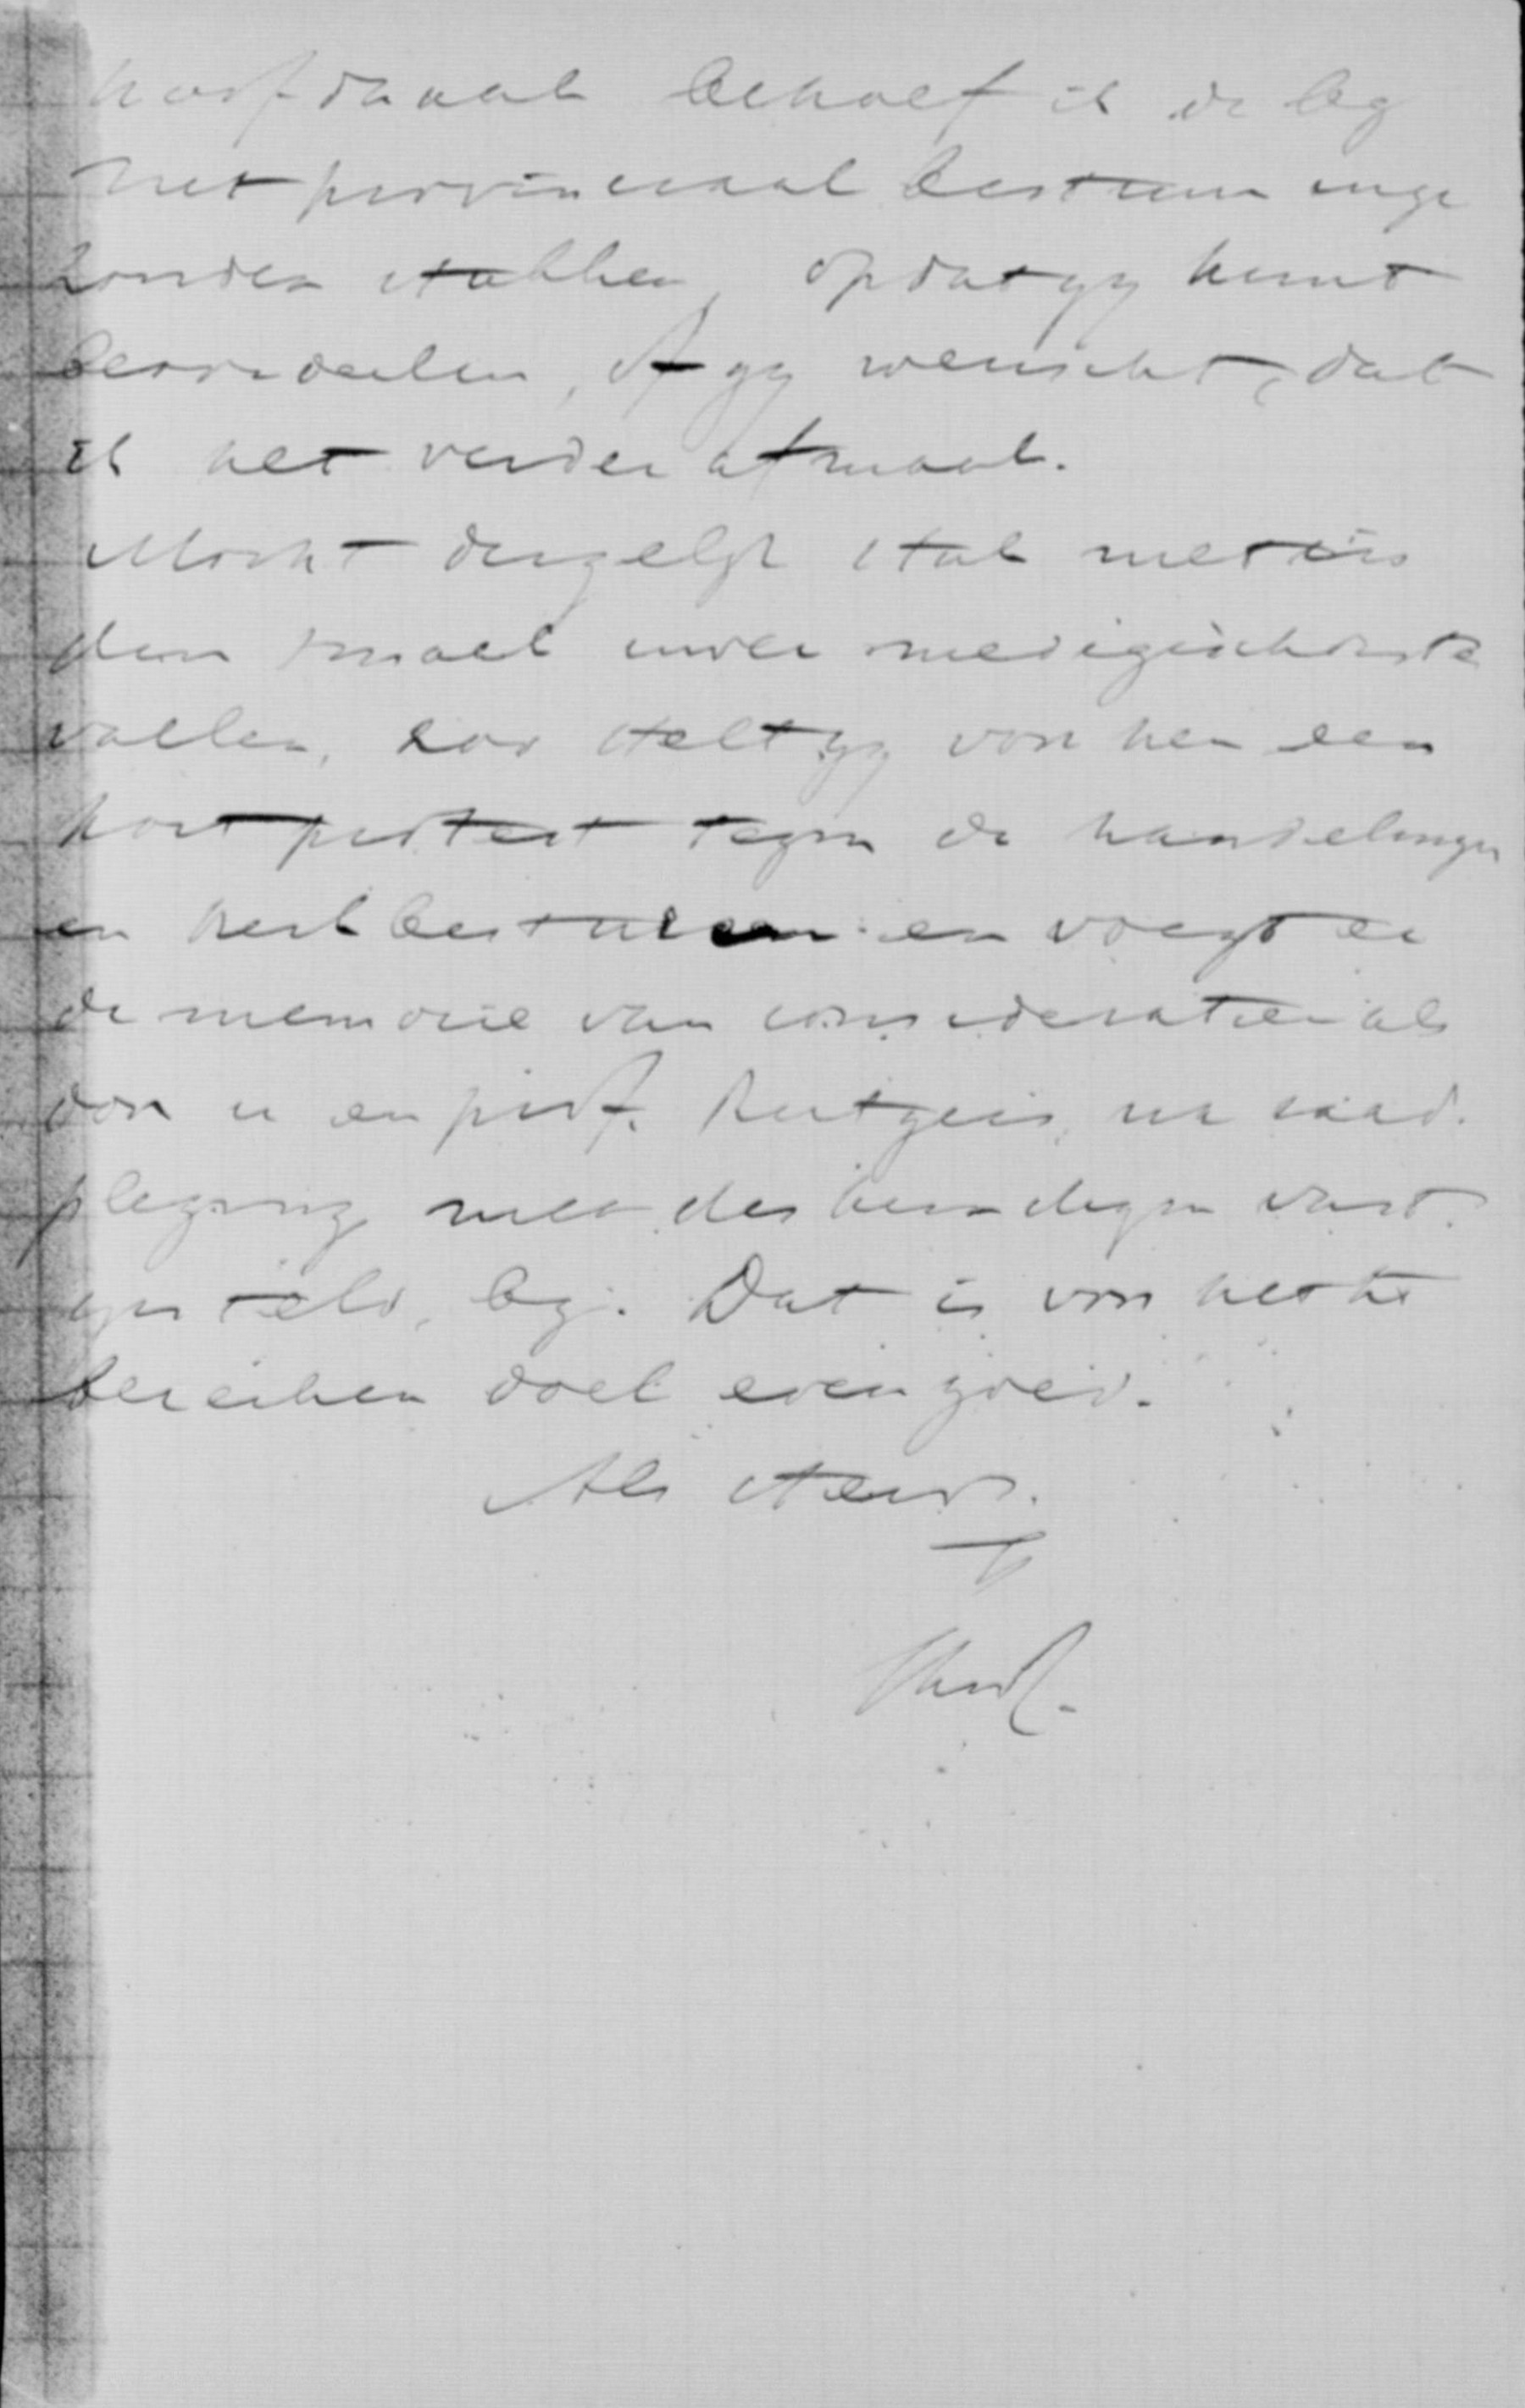 hoofdzaak behoef ik de bij
het provinciaal bestuur inge
zonden stukken, opdat gij kunt
beoordeelen, of gij wenscht, dat
ik het verder afmaak.
Mocht dergelijk stuk niet in
den smaak uwer medegeschorste
vallen, zoo stelt gij voor hen een
kort protest tegen de handelingen
en kerkbesturen en voegt er
de memorie van consideratien als
door u en prof. Rutgers, na raad-
pleging met deskundigen vast-
gesteld, bij. Dat is voor het te
bereiken doel even goed.
Als steeds.